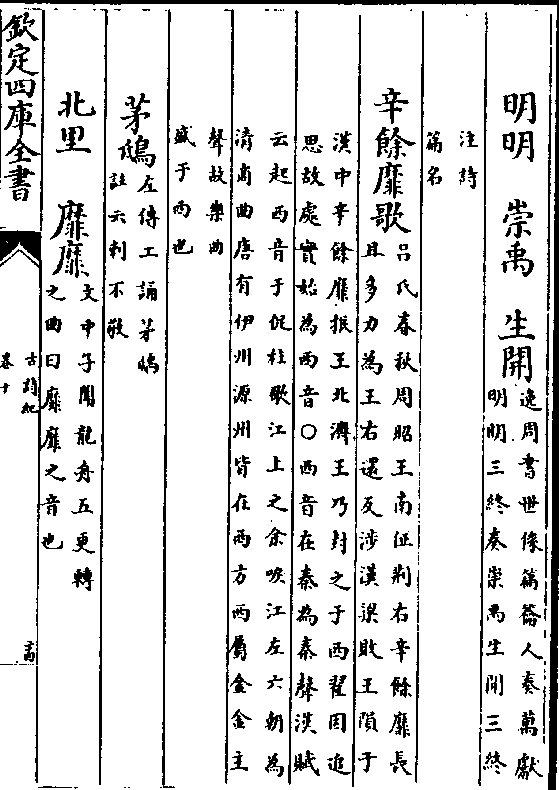 明明　崇禹　生開
逸周書世俘篇籥人奏萬獻
明明三終奏崇禹生開三終
注詩
篇名
辛餘靡歌
呂氏春秋周昭王南征荆右辛餘靡長
且多力為王右還反涉漢梁敗王隕于
漢中辛餘靡振王北濟王乃封之于西翟因追
思故處實始為西音○西音在秦為秦聲漢賦
云起西音于促柱歌江上之余唳江左六朝為
清商曲唐有伊州源州皆在西方西屬金金主
聲故樂曲
盛于西也
茅鴟
左傳工誦茅鴟
註云刺不敬
北里　靡靡
文中子聞龍舟五更轉
之曲曰靡靡之音也
欽定四庫全書
古詩紀
卷十